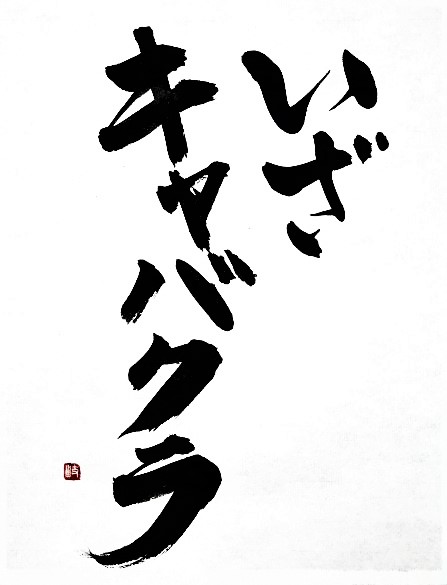 いざ
キャバクラ